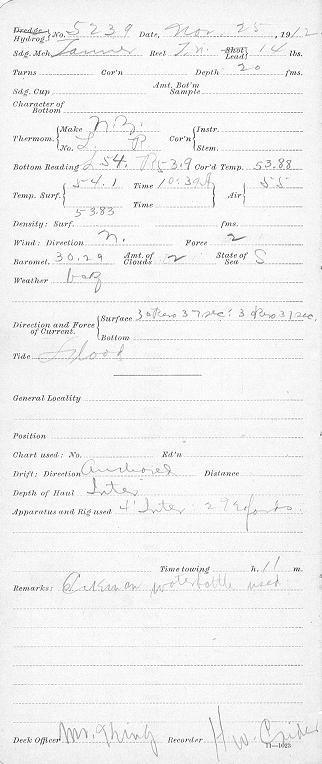 Dredge Hydrog. No. 5239 Date, Nov. 25, 1912
Sdg. Mch. Tanner Reel T.n. Shot Lead 14 lbs.
Turns Cor'n Depth 20 fms.
Sdg. Cup Amt. Bot'm Sample
Character of Bottom
Thermom. Make N.Z. Cor'n Instr.
No. L. R Stem.
Bottom Reading L 54. R 53.9 Cor'd Temp. 53.88
Temp. Surf. 54.1 Time 10:39 A Air 55
53.83 Time
Density: Surf. fms.
Wind: Direction N. Force 2
Baromet. 30.29 Amt. of Clouds 2 State of Sea S
Weather bcz
Direction and Force of Current. Surface 37 sec. 31 sec.
Bottom
Tide Flood
General Locality
Position
Chart used: No. Ed'n
Drift: Direction Anchored Distance
Depth of Haul Inter
Apparatus and Rig used 4' Inter 29
Time towing h. 11 m.
Remarks: water bottle used
Deck Officer Mr. Recorder H. W.
11—1023